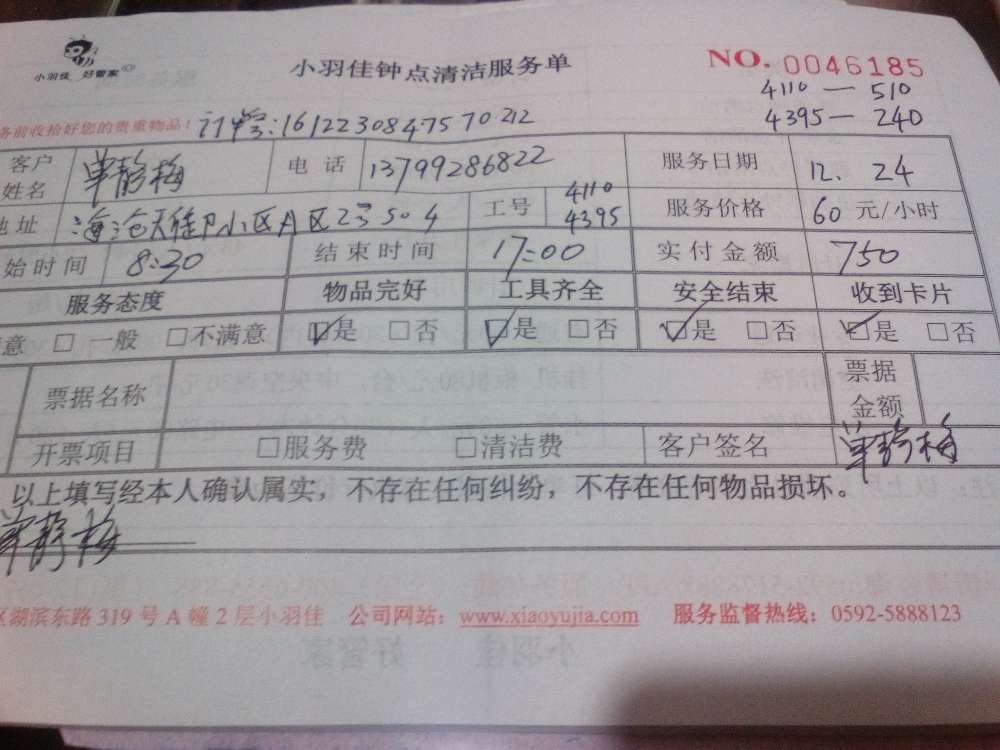 小羽佳 好管家
小羽佳钟点清洁服务单
NO. 0046185
4110 — 510
4395 — 240
务前收拾好您的贵重物品！
:1612230847570212
客户姓名 单静梅 电话 13799286822 服务日期 12. 24
地址 海沧天佳 小区A区 504 工号 4110 4395 服务价格 60 元/小时
始时间 8:30 结束时间 17:00 实付金额 750
服务态度 物品完好 工具齐全 安全结束 收到卡片
意 □ 一般 □不满意 ☑是 □否 ☑是 □否 ☑是 □否 ☑是 □否
票据名称 票据金额
开票项目 □服务费 □清洁费 客户签名 单静梅
以上填写经本人确认属实，不存在任何纠纷，不存在任何物品损坏。
单静梅
区湖滨东路 319 号 A 幢 2 层小羽佳 公司网站：www.xiaoyujia.com 服务监督热线：0592-5888123